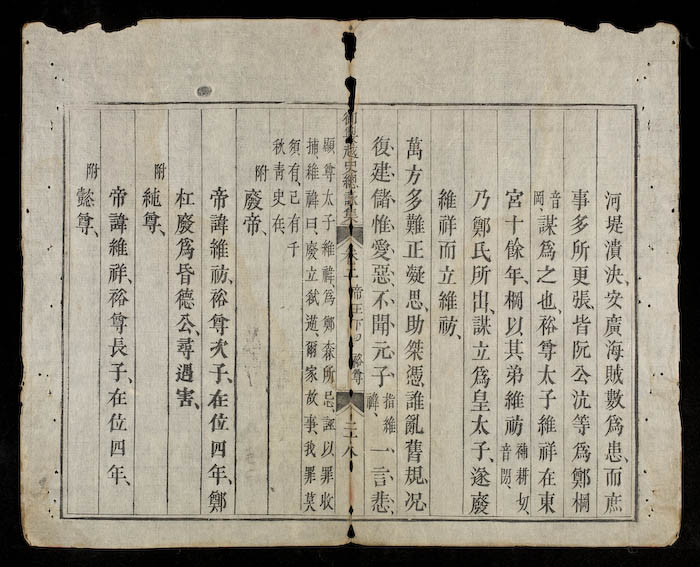 河堤潰決、安廣海賊數爲患、而庶
事多所更張、皆阮公沆等爲鄭棡
音岡、謀爲之也、裕尊太子維祥在東
宮十餘年、棡以其弟維祊補耕切、音閉、
乃鄭氏所出、謀立爲皇太子、遂廢
維祥而立維祊、
萬方多難正凝思、助桀憑誰亂舊規、况
復建儲惟愛惡、不聞元子指維禕、一言悲、
御製越史總詠集 卷二 帝王下 裕尊 二十八
顯尊太子維禕、爲鄭森所忌、誣以罪收
捕、維禕曰、廢立弑逆、爾家故事、我罪莫
須有、已有千
秋靑史在、
附
廢帝、
帝諱維祊、裕尊次子、在位四年、鄭
杠廢爲昏德公、尋遇害、
附
純尊、
帝諱維祥、裕尊長子、在位四年、
附
懿尊、